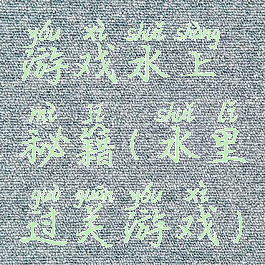 yóu xì shuǐ shàng
游戏水上
mì jí shuǐ lǐ
秘籍(水里
guò guān yóu xì
过关游戏)